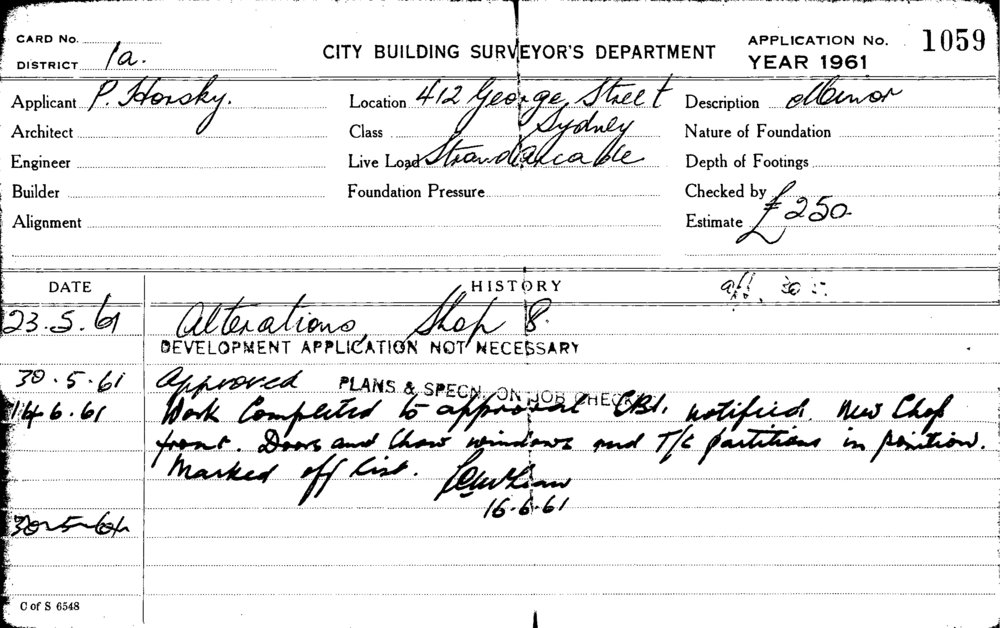 CARD No.
DISTRICT 1a.
CITY BUILDING SURVEYOR'S DEPARTMENT
APPLICATION No. 1059
YEAR 1961
Applicant P. Horsky. Location 412 George Street Description Minor
Architect Class Sydney Nature of Foundation
Engineer Live Load Strand Arcade Depth of Footings
Builder Foundation Pressure Checked by
Alignment Estimate £250
DATE HISTORY
23.5.61 Alterations, Shop 8.
DEVELOPMENT APPLICATION NOT NECESSARY
30.5.61 Approved PLANS & SPECN. ON JOB CHECKED
14.6.61 Work Completed to approval notified. New Shop
front. Doors and Show windows and T/c partitions in position.
Marked off list.
16.6.61
30-5-61
C of S 6548